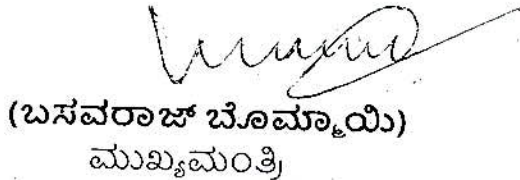 (ಬಸವರಾಜ್ ಬೊಮ್ಮಾಯಿ)
ಮುಖ್ಯಮಂತ್ರಿ